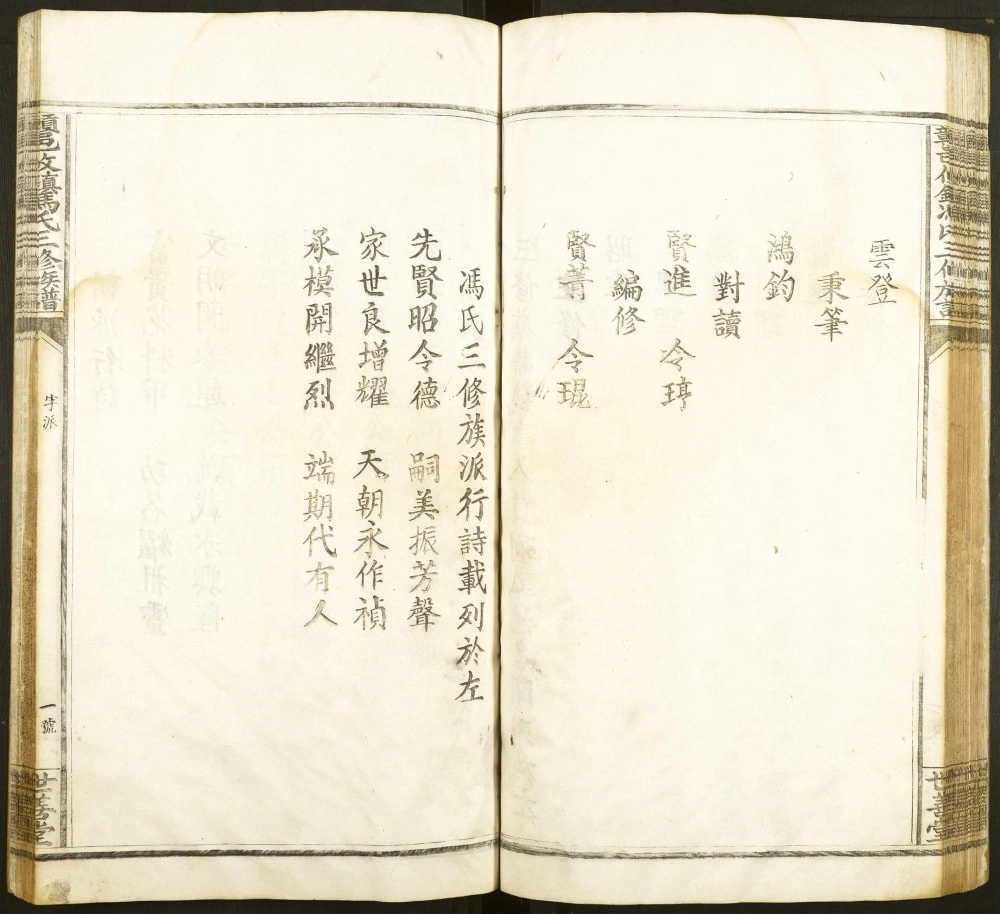 雲登
秉筆
鴻鈞
對讀
賢進 令㻴
編修
賢菁 令琨
馮氏三修族派行詩載列於左
先賢昭令德 嗣美振芳聲
家世良增耀 天朝永作禎
承模開繼烈 端期代有人
馮氏三修族譜
字派
一號
世善堂
世善堂